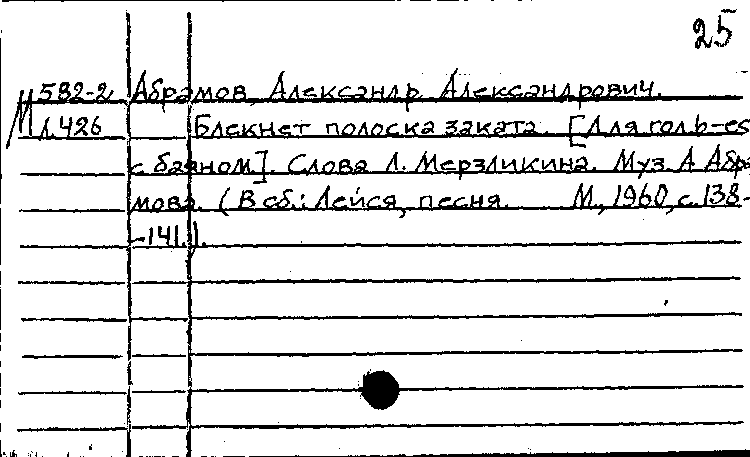 25
М 582-2 Абрамов, Александр Александрович.
Л426 Блекнет полоска заката. [Для гол. b-es
с баяном]. Слова Л. Мерзликина. Муз. А. Абра-
мова. (В сб.: Лейся, песня. М., 1960, с. 138-
-141.).